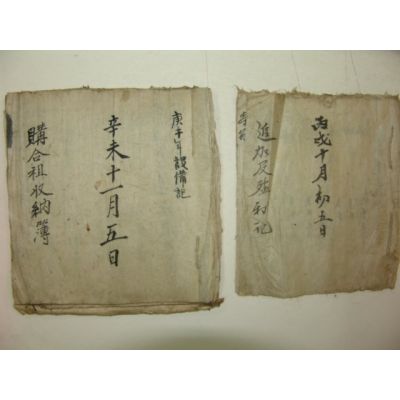 庚午年設備記
辛未十一月五日
購合租收納簿
丙戌十月初五日
追加及殖利記